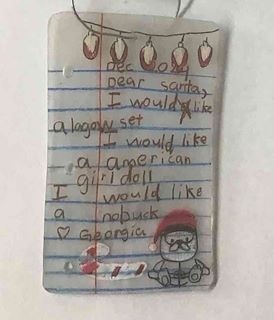 Dec
Dear santa,
I would like
a lagow set
I would like
a american
girl doll
I would like
a nobuck
♡ Georgia